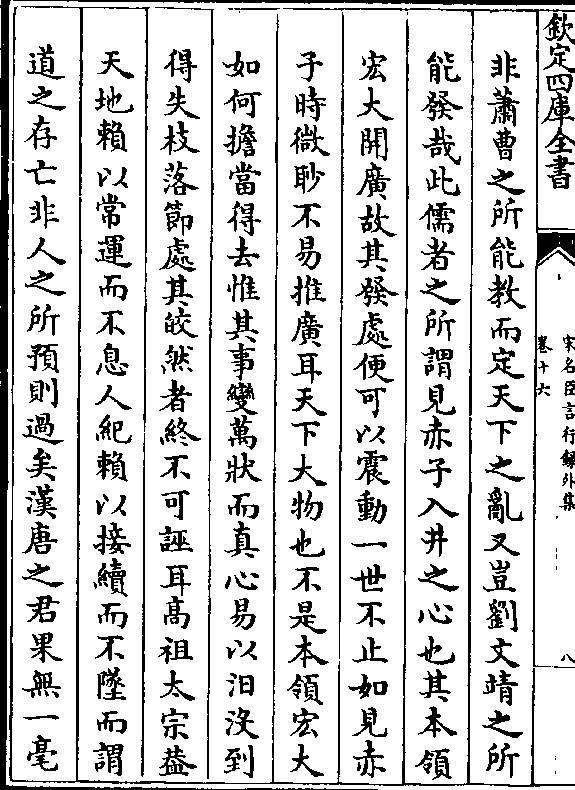 欽定四庫全書
宋名臣言行録外集
卷十六
八
非蕭曹之所能教而定天下之亂又豈劉文靖之所
能發哉此儒者之所謂見赤子入井之心也其本領
宏大開廣故其發處便可以震動一世不止如見赤
子時微眇不易推廣耳天下大物也不是本領宏大
如何擔當得去惟其事變萬狀而真心易以汨沒到
得失枝落節處其皎然者終不可誣耳髙祖太宗葢
天地賴以常運而不息人紀賴以接續而不墜而謂
道之存亡非人之所預則過矣漢唐之君果無一毫